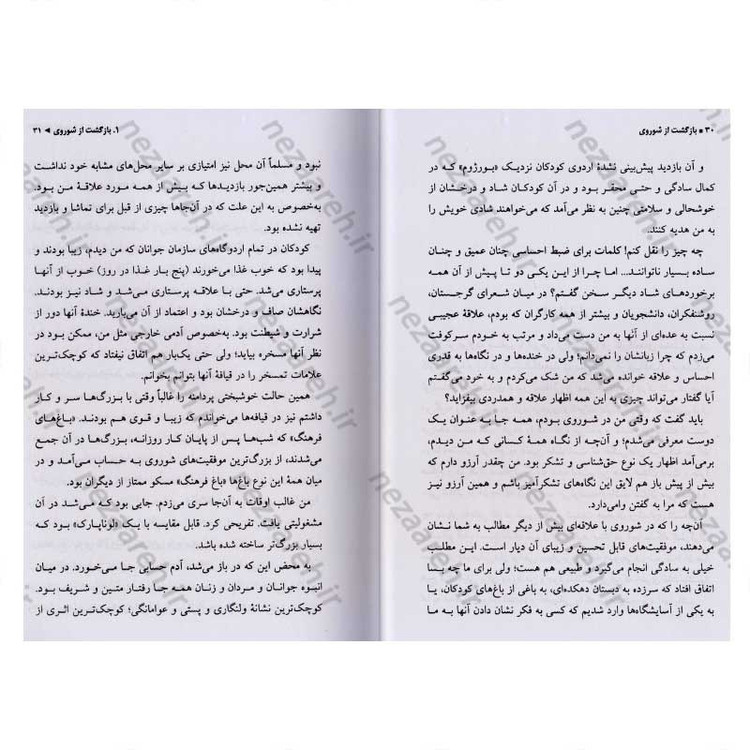 ۳۰ ■ بازگشت از شوروی
و آن بازدید پیش‌بینی نشدهٔ اردوی کودکان نزدیک «بورژوم» که در
کمال سادگی و حتی محقر بود و در آن کودکان شاد و درخشان از
خوشحالی و سلامتی چنین به نظر می‌آمد که می‌خواهند شادی خویش را
به من هدیه کنند.
چه چیز را نقل کنم! کلمات برای ضبط احساسی چنان عمیق و چنان
ساده بسیار ناتوانند... اما چرا از این یکی دو تا پیش از آن همه
برخوردهای شاد دیگر سخن گفتم؟ در میان شعرای گرجستان،
روشنفکران، دانشجویان و بیشتر از همه کارگران که بودم، علاقهٔ عجیبی
نسبت به عده‌ای از آنها به من دست می‌داد و مرتب به خودم سرکوفت
می‌زدم که چرا زبانشان را نمی‌دانم؛ ولی در خنده‌ها و در نگاه‌ها به قدری
احساس و علاقه خوانده می‌شد که من شک می‌کردم و به خود می‌گفتم
آیا گفتار می‌تواند چیزی به این همه اظهار علاقه و همدردی بیفزاید؟
باید گفت که وقتی من در شوروی بودم، همه جا به عنوان یک
دوست معرفی می‌شدم؛ و آن‌چه از نگاه همهٔ کسانی که من دیدم،
برمی‌آمد اظهار یک نوع حق‌شناسی و تشکر بود. من چقدر آرزو دارم که
بیش از پیش باز هم لایق این نگاه‌های تشکرآمیز باشم و همین آرزو نیز
هست که مرا به گفتن وامی‌دارد.
آن‌چه را که در شوروی با علاقه‌ای بیش از دیگر مطالب به شما نشان
می‌دهند، موفقیت‌های قابل تحسین و زیبای آن دیار است. این مطلب
خیلی به سادگی انجام می‌گیرد و طبیعی هم هست؛ ولی برای ما چه بسا
اتفاق افتاد که سرزده به دبستان دهکده‌ای، به باغی از باغ‌های کودکان، یا
به یکی از آسایشگاه‌ها وارد شدیم که کسی به فکر نشان دادن آنها به ما
۱. بازگشت از شوروی ◄ ۳۱
نبود و مسلماً آن محل نیز امتیازی بر سایر محل‌های مشابه خود نداشت
و بیشتر همین‌جور بازدیدها که بیش از همه مورد علاقهٔ من بود.
به‌خصوص به این علت که در آن‌جاها چیزی از قبل برای تماشا و بازدید
تهیه نشده بود.
کودکان در تمام اردوگاه‌های سازمان جوانان که من دیدم، زیبا بودند و
پیدا بود که خوب غذا می‌خورند (پنج بار غذا در روز) خوب از آنها
پرستاری می‌شد. حتی با علاقه پرستاری می‌شد و شاد نیز بودند.
نگاهشان صاف و درخشان بود و اعتماد از آن می‌بارید. خندهٔ آنها دور از
شرارت و شیطنت بود. به‌خصوص آدمی خارجی مثل من، ممکن بود در
نظر آنها مسخره بیاید؛ ولی حتی یک‌بار هم اتفاق نیفتاد که کوچک‌ترین
علامات تمسخر را در قیافهٔ آنها بتوانم بخوانم.
همین حالت خوشبختی پردامنه را غالباً وقتی با بزرگ‌ها سر و کار
داشتم نیز در قیافه‌ها می‌خواندم که زیبا و قوی هم بودند. «باغ‌های
فرهنگ» که شب‌ها پس از پایان کار روزانه، بزرگ‌ها در آن جمع
می‌شدند، از بزرگ‌ترین موفقیت‌های شوروی به حساب می‌آمد و در
میان همهٔ این نوع باغ‌ها «باغ فرهنگ» مسکو ممتاز از دیگران بود.
من غالب اوقات به آن‌جا سری می‌زدم. جایی بود که می‌شد در آن
مشغولیتی یافت. تفریحی کرد. قابل مقایسه با یک «لوناپارک» بود که
بسیار بزرگ‌تر ساخته شده باشد.
به محض این که در باز می‌شد، آدم حسابی جا می‌خورد. در میان
انبوه جوانان و مردان و زنان همه جا رفتار متین و شریف بود.
کوچک‌ترین نشانهٔ ولنگاری و پستی و عوامانگی؛ کوچک‌ترین اثری از
nezaareh.ir
nezaareh.ir
nezaareh.ir
nezaareh.ir
nezaareh.ir
nezaareh.ir
nezaareh.ir
nezaareh.ir